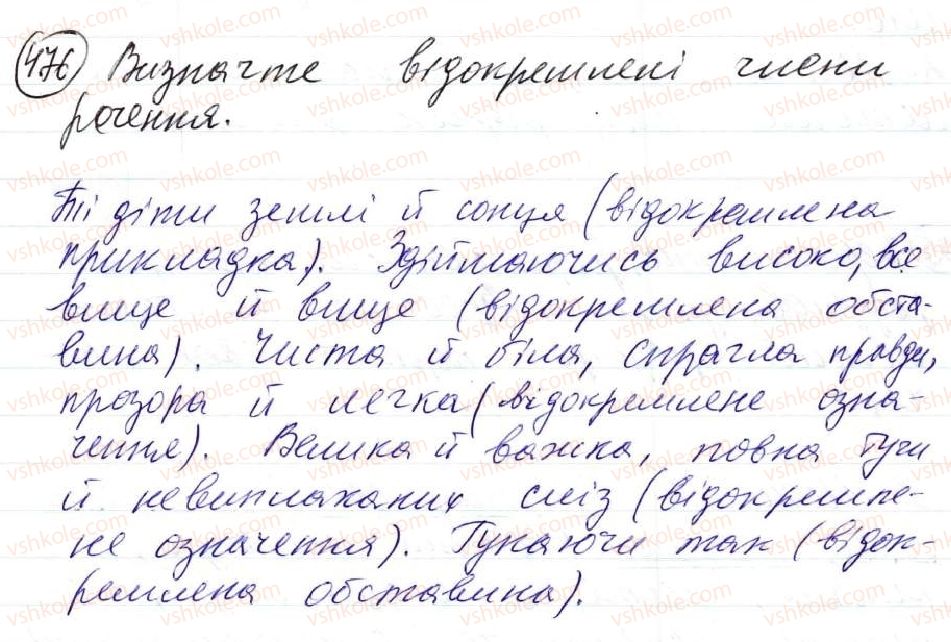 476 Визначте відокремлені члени
речення.
Ті діти землі й сонця (відокремлена
прикладка). Здіймаючись високо, все
вище й вище (відокремлена обста-
вина). Чиста й біла, спрагла правди,
прозора й легка (відокремлене озна-
чення). Велика й важка, повна туги
й невиплаканих сліз (відокремле-
не означення). Гукаючи так (відок-
ремлена обставина).